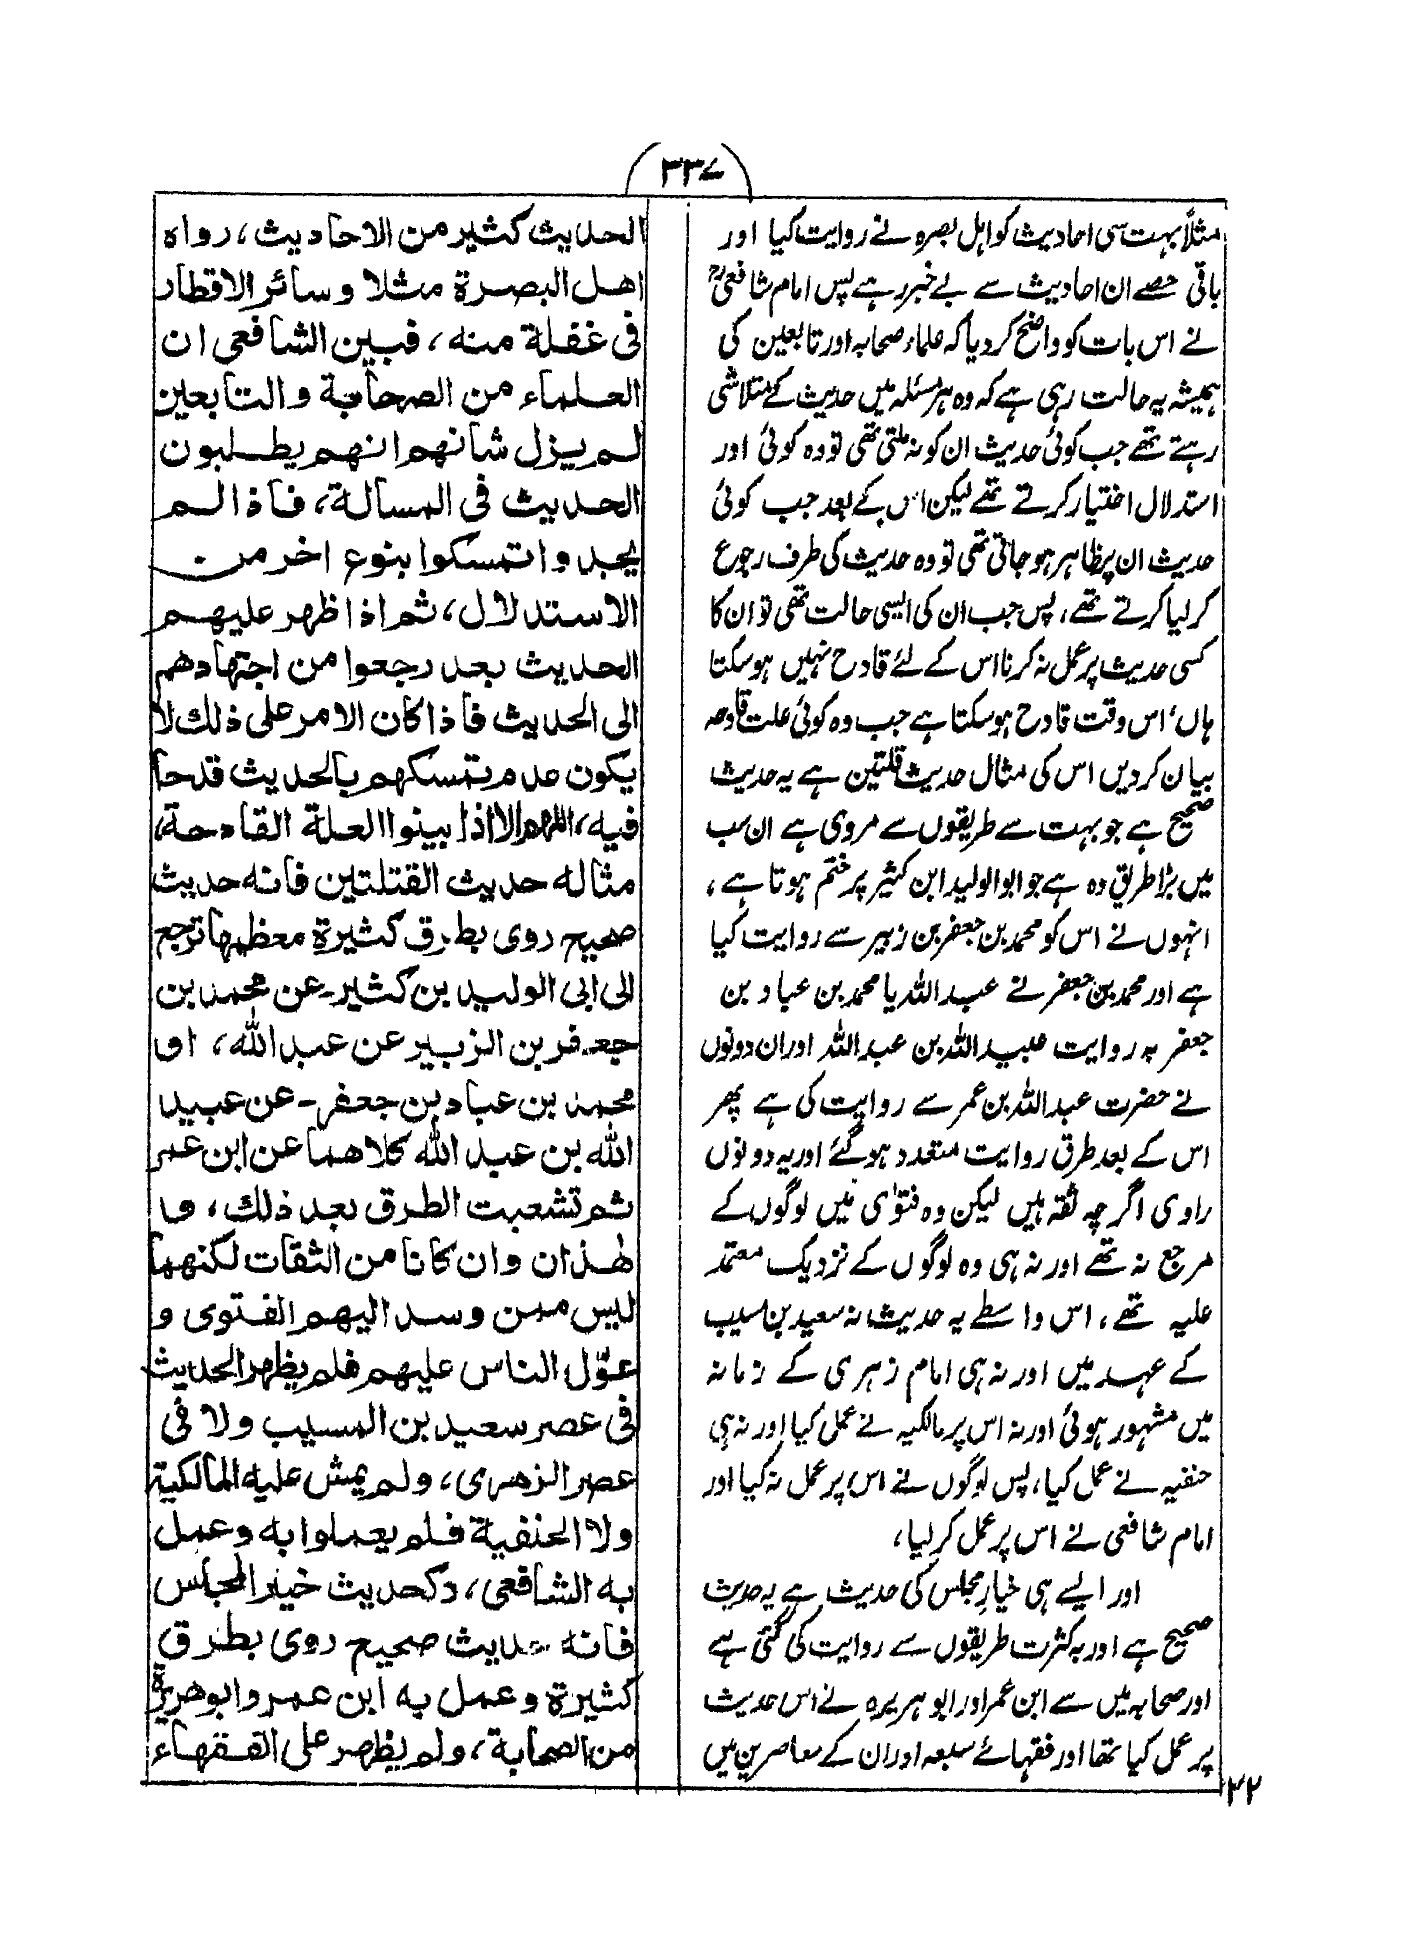 ۳۳۷
مثلاً بہت سی احادیث کو اہل بصرہ نے روایت کیا اور
باقی حصے ان احادیث سے بے خبر رہے پس امام شافعیؒ
نے اس بات کو واضح کر دیا کہ علماء صحابہ اور تابعین کی
ہمیشہ یہ حالت رہی ہے کہ وہ ہر مسئلہ میں حدیث کے متلاشی
رہتے تھے جب کوئی حدیث ان کو نہ ملتی تھی تو وہ کوئی اور
استدلال اختیار کرتے تھے لیکن اس کے بعد جب کوئی
حدیث ان پر ظاہر ہو جاتی تھی تو وہ حدیث کی طرف رجوع
کر لیا کرتے تھے، پس جب ان کی ایسی حالت تھی تو ان کا
کسی حدیث پر عمل نہ کرنا اس کے لئے قادح نہیں ہو سکتا
ہاں، اس وقت قادح ہو سکتا ہے جب وہ کوئی علت قادحہ
بیان کر دیں اس کی مثال حدیث قلتین ہے یہ حدیث
صحیح ہے جو بہت سے طریقوں سے مروی ہے ان سب
میں بڑا طریق وہ ہے جو ابو الولید ابن کثیر پر ختم ہوتا ہے،
انہوں نے اس کو محمد بن جعفر بن زبیر سے روایت کیا
ہے اور محمد بن جعفر نے عبد اللہ یا محمد بن عباد بن
جعفر بہ روایت عبید اللہ بن عبد اللہ اور ان دونوں
نے حضرت عبد اللہ بن عمر سے روایت کی ہے پھر
اس کے بعد طرق روایت متعدد ہو گئے اور یہ دونوں
راوی اگرچہ ثقہ ہیں لیکن وہ فتوٰی میں لوگوں کے
مرجع نہ تھے اور نہ ہی وہ لوگوں کے نزدیک معتمد
علیہ تھے، اس واسطے یہ حدیث نہ سعید بن مسیب
کے عہد میں اور نہ ہی امام زہری کے زمانہ
میں مشہور ہوئی اور نہ اس پر مالکیہ نے عمل کیا اور نہ ہی
حنفیہ نے عمل کیا، پس لوگوں نے اس پر عمل نہ کیا اور
امام شافعی نے اس پر عمل کر لیا،
اور ایسے ہی خیارِ مجلس کی حدیث ہے یہ حدیث
صحیح ہے اور بہ کثرت طریقوں سے روایت کی گئی ہے
اور صحابہ میں سے ابن عمر اور ابو ہریرہ نے اس حدیث
پر عمل کیا تھا اور فقہائے سبعہ اور ان کے معاصرین میں
الحدیث کثیر من الاحادیث، رواہ
اھل البصرة مثلا وسائر الاقطار
فی غفلة منه، فبین الشافعی ان
العلماء من الصحابة والتابعین
لم یزل شانھم انھم یطلبون
الحدیث فی المسالة، فاذا لم
یجدوا تمسکوا بنوع اخر من
الاستدلال، ثم اذا ظھر علیھم
الحدیث بعد رجعوا من اجتھادھم
الی الحدیث فاذا کان الامر علی ذلك لا
یکون عدم تمسکھم بالحدیث قدحا
فیه، اللھم الا اذا بینوا العلة القادحة،
مثاله حدیث القتلتین فانه حدیث
صحیح روی بطرق کثیرة معظمھا ترجع
الی ابی الولید بن کثیر۔ عن محمد بن
جعفر بن الزبیر عن عبد الله، او
محمد بن عباد بن جعفر۔ عن عبید
الله بن عبد الله کلاھما عن ابن عمر
ثم تشعبت الطرق بعد ذلك، و
ھذان وان کانا من الثقات لکنھما
لیس ممن وسد الیھم الفتوی و
عوّل الناس علیھم فلم یظھر الحدیث
فی عصر سعید بن المسیب ولا فی
عصر الزھری، ولم یمش علیه المالکیة
ولا الحنفیة فلم یعملوا به وعمل
به الشافعی، وکحدیث خیار المجلس
فانه حدیث صحیح روی بطرق
کثیرة وعمل به ابن عمر وابو ھریرة
من الصحابة، ولم یظھر علی الفقھاء
۴۲